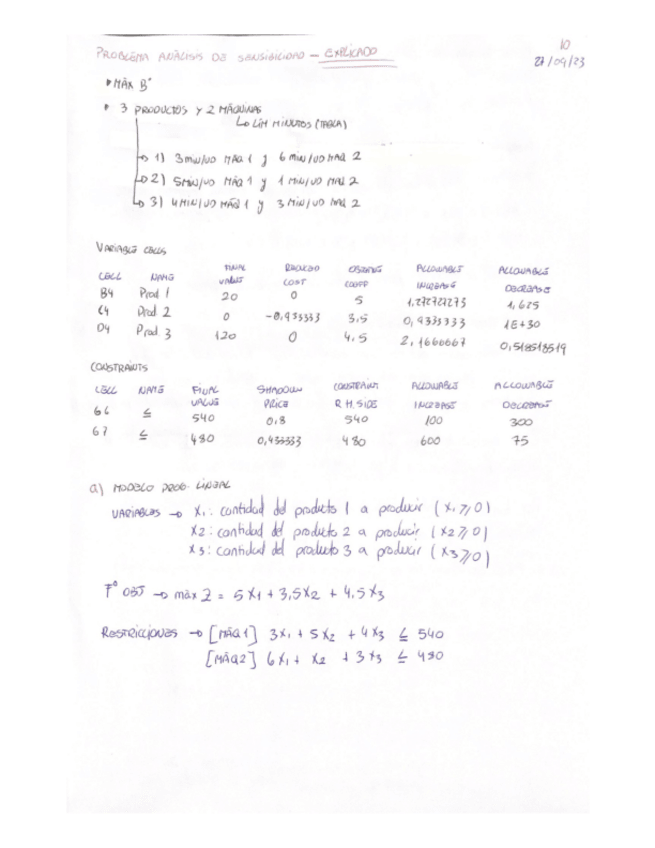 PROBLEMA ANÁLISIS DE SENSIBILIDAD – EXPLICADO
10
27/09/23
MÁX Bº
3 PRODUCTOS Y 2 MÁQUINAS
LIM MINUTOS (TABLA)
1) 3 MIN/UD MAQ 1 y 6 MIN/UD MAQ 2
2) 5 MIN/UD MAQ 1 y 1 MIN/UD MAQ 2
3) 4 MIN/UD MAQ 1 y 3 MIN/UD MAQ 2
VARIABLE CELLS
CELL NAME FINAL VALUE REDUCED COST OBJECTIVE COEFF ALLOWABLE INCREASE ALLOWABLE DECREASE
B4 Prod 1 20 0 5 1,272727273 1,625
C4 Prod. 2 0 -0,933333 3,5 0,9333333 1E+30
D4 Prod. 3 120 0 4,5 2,1666667 0,518518519
CONSTRAINTS
CELL NAME FINAL VALUE SHADOW PRICE CONSTRAINT R.H. SIDE ALLOWABLE INCREASE ALLOWABLE DECREASE
G6 ≤ 540 0,8 540 100 300
G7 ≤ 480 0,433333 480 600 75
a) MODELO PROG. LINEAL
VARIABLES → X1: cantidad del producto 1 a producir (X1 ≥ 0)
X2: cantidad del producto 2 a producir (X2 ≥ 0)
X3: cantidad del producto 3 a producir (X3 ≥ 0)
Fº OBJ → máx Z = 5X1 + 3,5X2 + 4,5X3
RESTRICCIONES → [MÁQ1] 3X1 + 5X2 + 4X3 ≤ 540
[MÁQ2] 6X1 + X2 + 3X3 ≤ 480